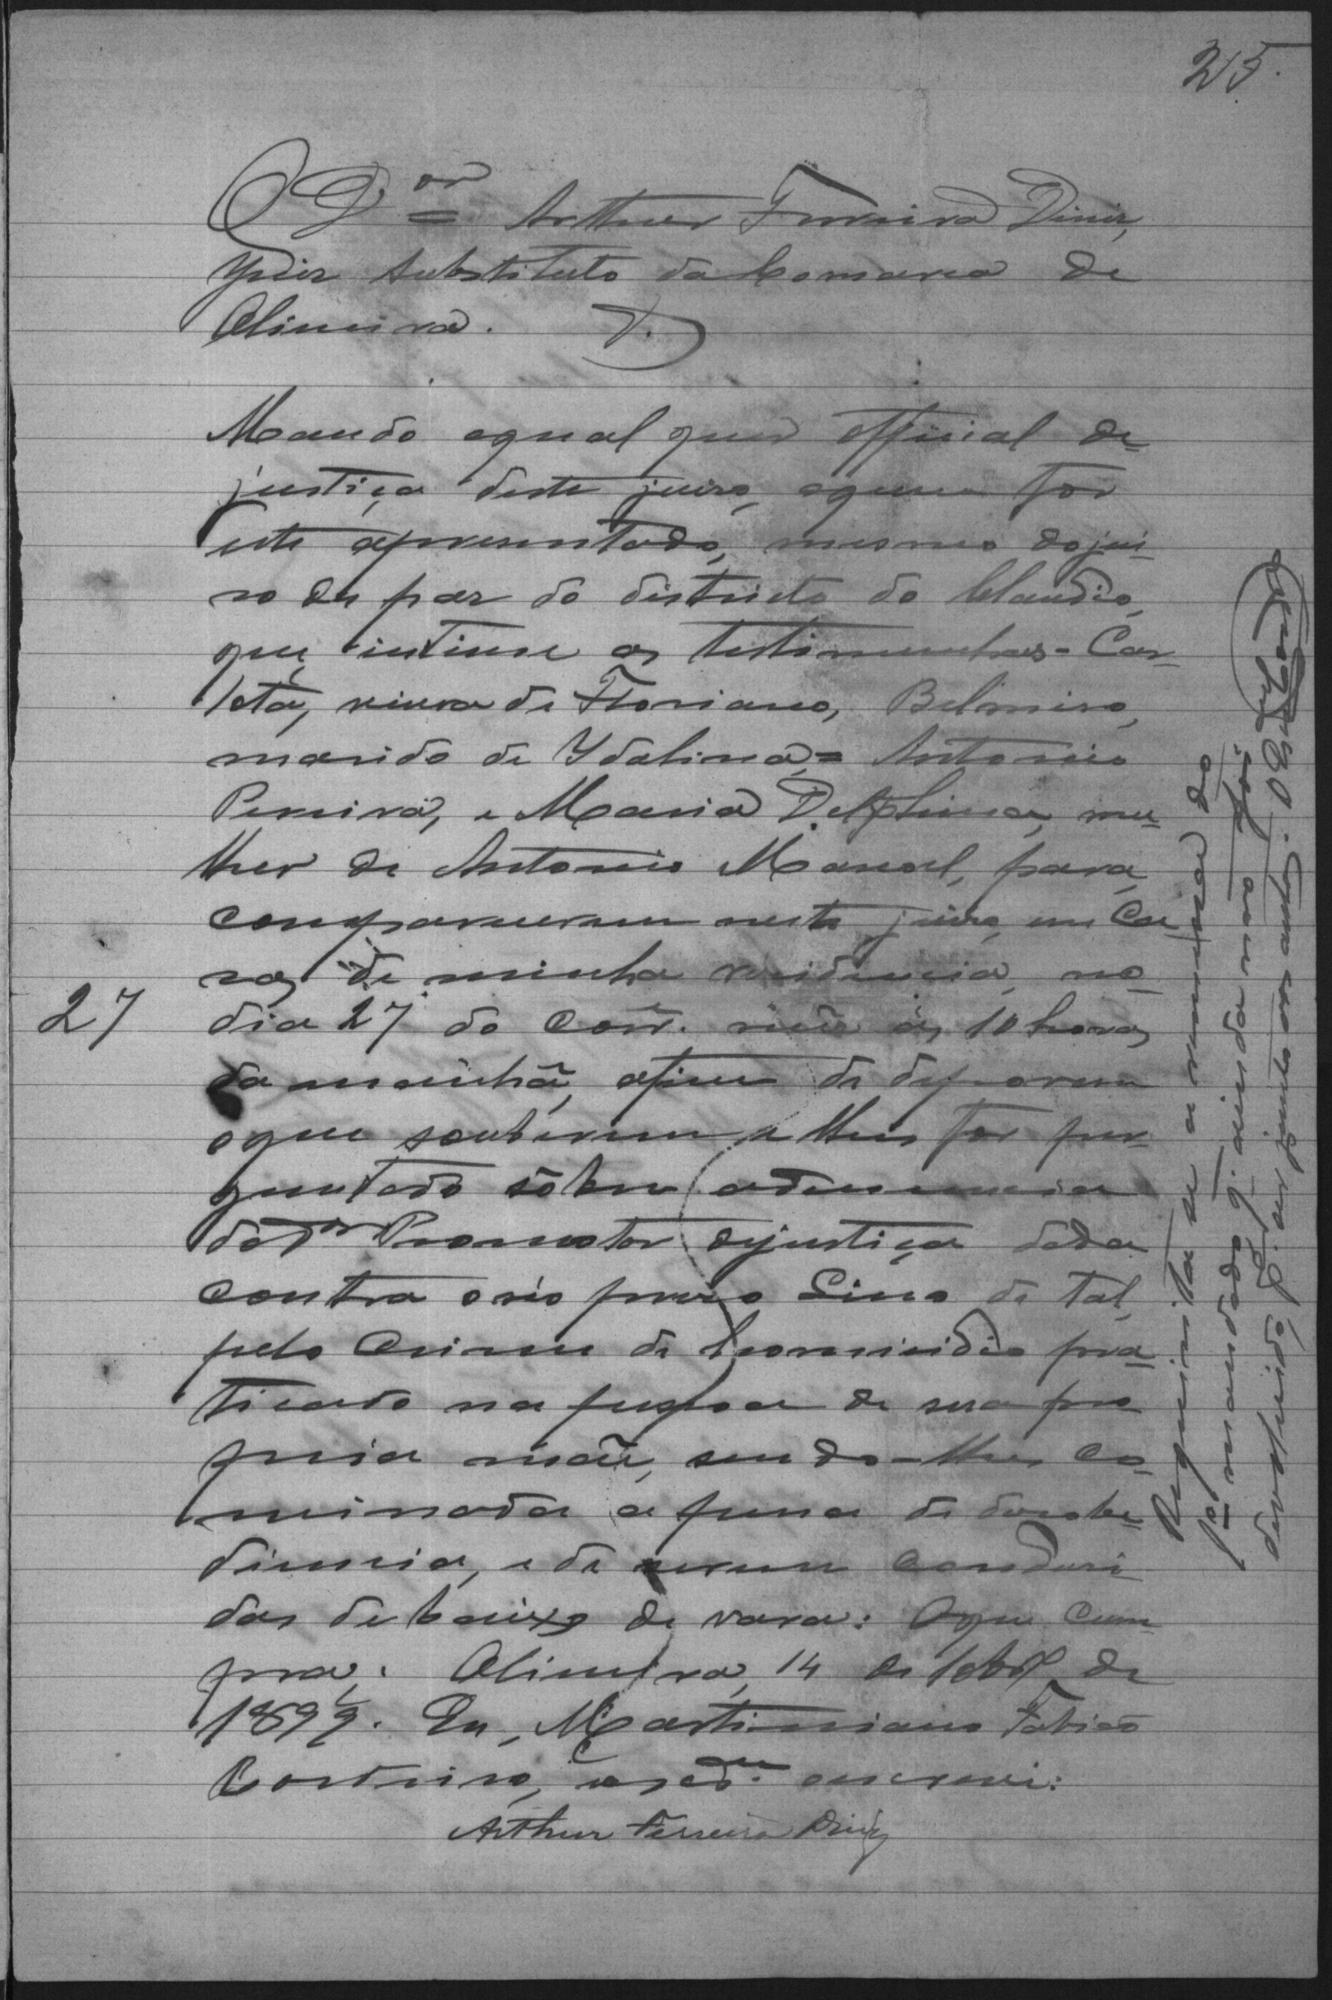 25.
O D.or Arthur Ferreira Diniz,
Juiz Substituto da Comarca de
Oliveira.
Mando aqual quer official de
justiça deste juizo, aquem for
este apresentado, mesmo do jui-
zo de paz do districto do Claudio,
que intime as testimunhas - Car-
lota, viuva de Floriano, Belmiro,
marido de Ydalina = Antonio
Pereira, e Maria Delphina, mu-
lher de Antonio Manoel, para
comparecerem neste juizo, em Ca-
sa de minha residencia, no
27
dia 27 do Corr. mês ás 10 horas
da manhã, afim de deporem
oque souberem e lhes for per-
guntado sôbre adenuncia
do Dor Promotor dejustiça dada
contra o réo prezo Lino de tal,
pelo Crime de homicidio pra-
ticado na pessoa de sua pro
pria mãe, sendo-lhes co-
minada a pena de desobe-
diencia, e de serem Conduzi
das debaixo de vara: Oque Cum-
pra. Oliveira, 14 de de
1892. Eu, Martiniano
Cordeiro, escrevi:
Arthur Ferreira Diniz
Requisita-se a remessa do
1º mandado q. ainda não foi
devolvido, p.a ser junto aos autos.